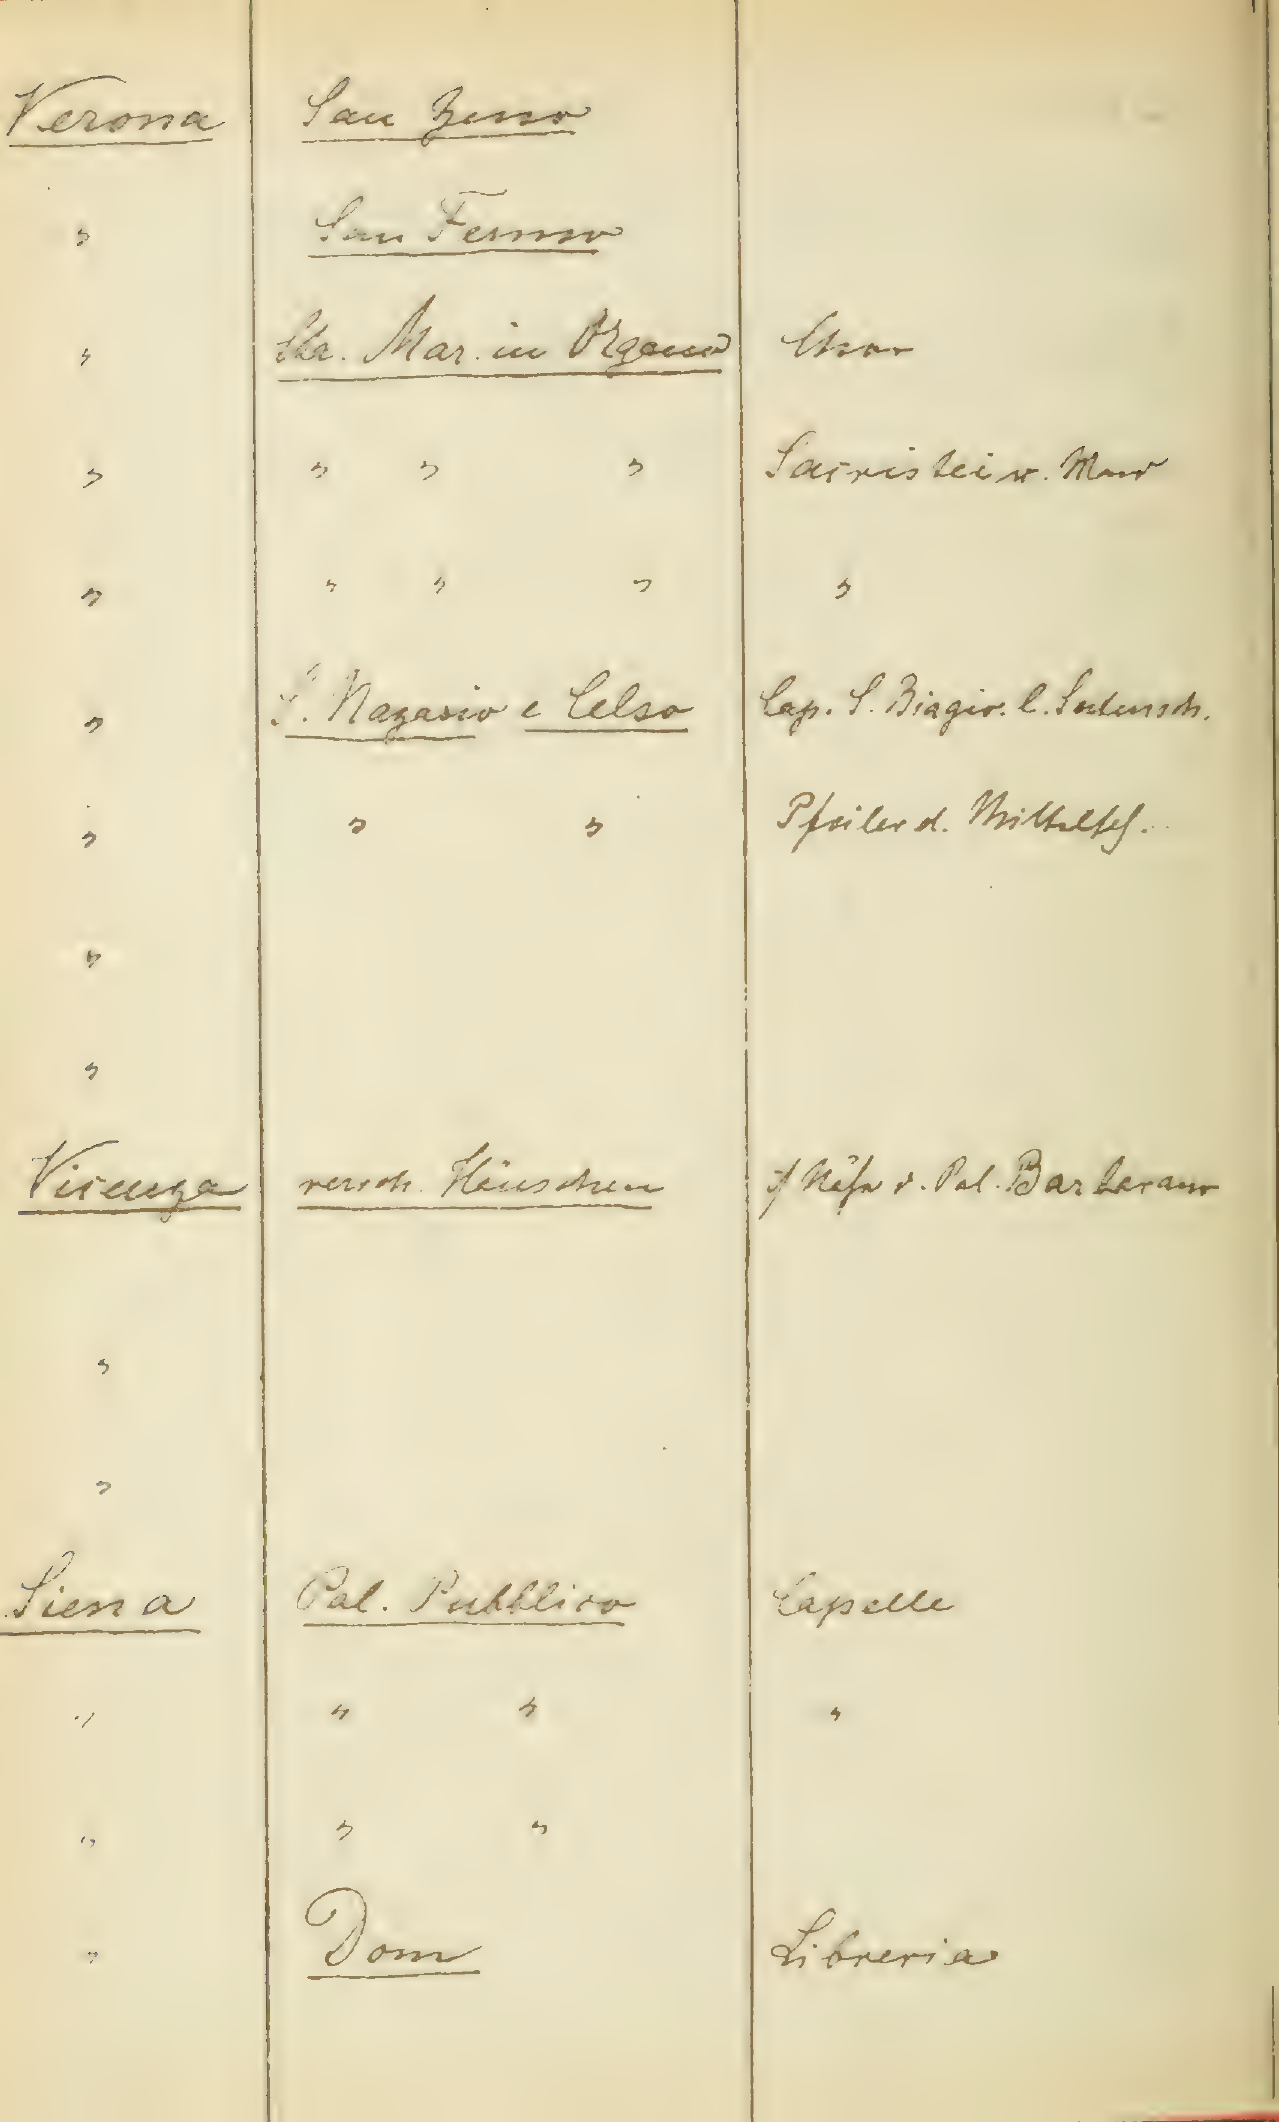 Verona San Zeno
" San Fermo
" Sta. Mar. in Organo Chor
" " " " Sacristei w. Mar
" " " " "
" S. Nazario e Celso Cap. S. Biagio. l. Seitensch.
" " " Pfeiler d. Mittelsch.
"
"
Vicenza versch. Häuschen i/ Nähe v. Pal. Barbarano
"
"
Siena Pal. Pubblico Capelle
" " " "
" " "
" Dom Libreria